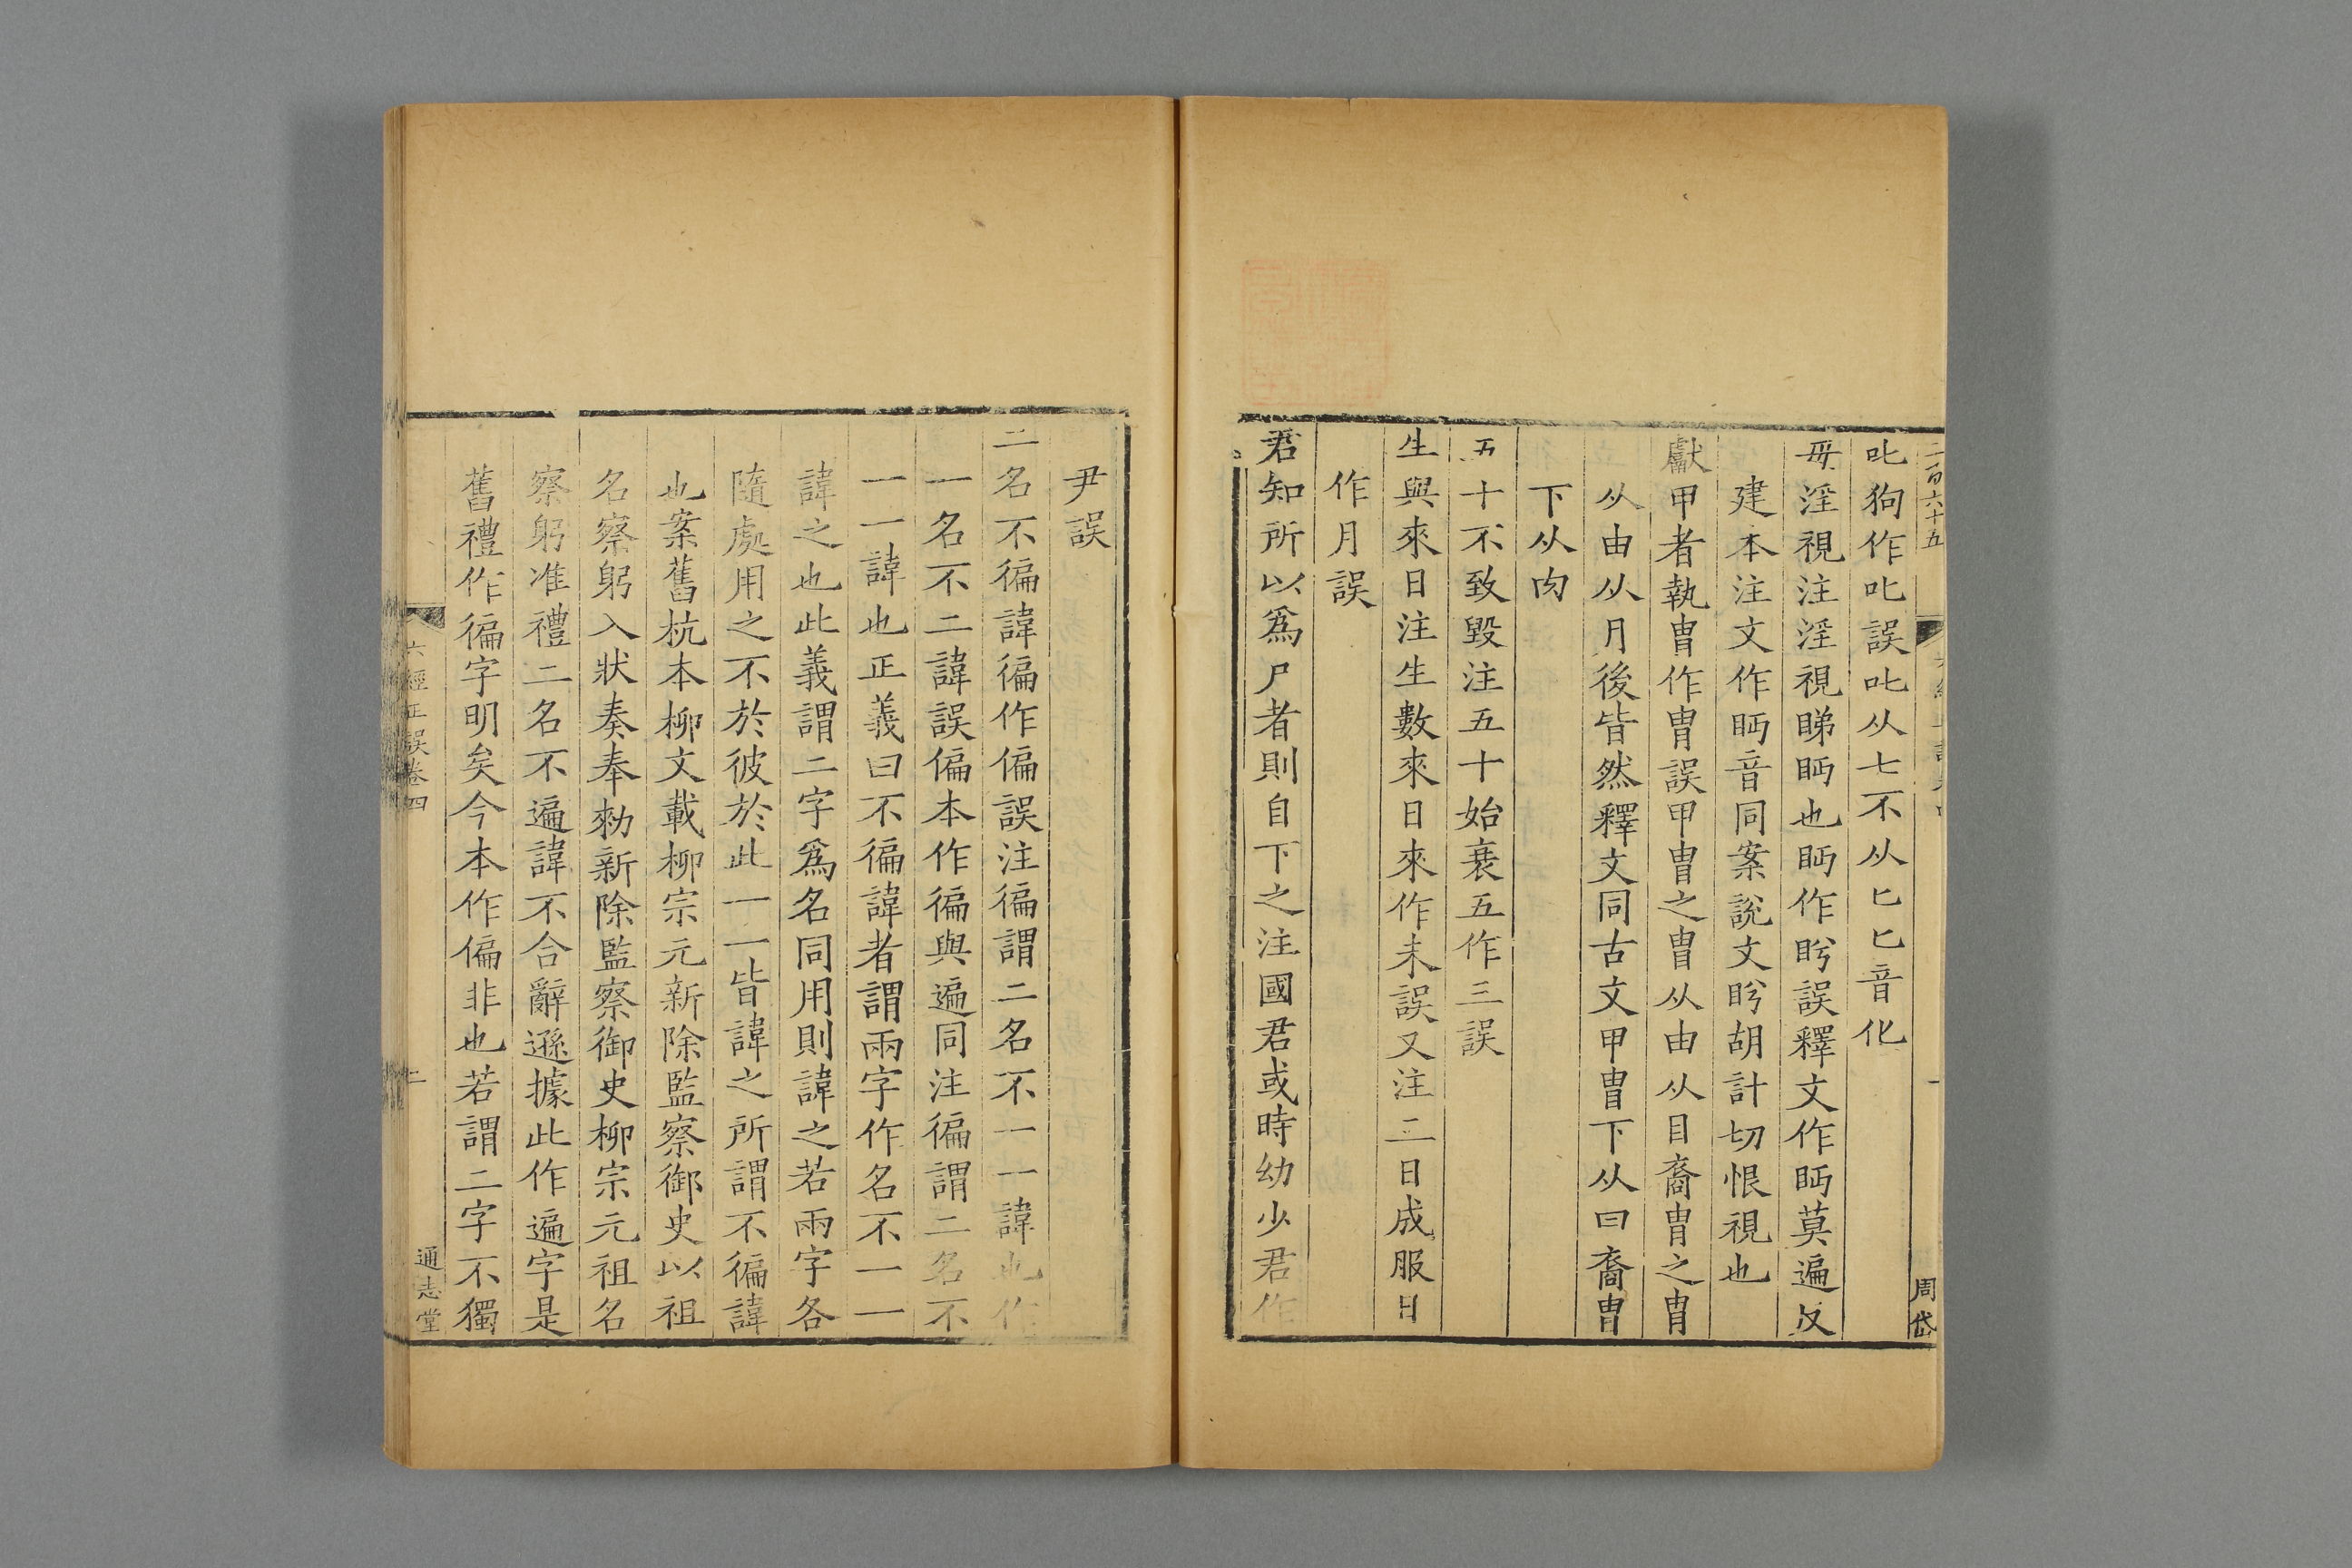 二百六十五
周岱
叱狗作叱誤叱从七不从匕匕音化
毋淫視注淫視睇眄也眄作盻誤釋文作眄莫遍反
建本注文作眄音同案說文盻胡計切恨視也
獻甲者執冑作胄誤甲冑之冑从由从目裔胄之胄
从由从月後皆然釋文同古文甲冑下从曰裔胄
下从肉
五十不致毀注五十始衰五作三誤
生與來日注生數來日來作未誤又注二日成服日
作月誤
君知所以爲尸者則自下之注國君或時幼少君作
尹誤
二名不徧諱徧作偏誤注徧謂二名不一一諱也作
一名不二諱誤偏本作徧與遍同注徧謂二名不
一一諱也正義曰不徧諱者謂兩字作名不一一
諱之也此義謂二字爲名同用則諱之若兩字各
隨處用之不於彼於此一一皆諱之所謂不徧諱
也案舊杭本柳文載柳宗元新除監察御史以祖
名察躬入狀奏奉勑新除監察御史柳宗元祖名
察躬准禮二名不遍諱不合辭遜據此作遍字是
舊禮作徧字明矣今本作偏非也若謂二字不獨
六經正誤卷四
二
通志堂